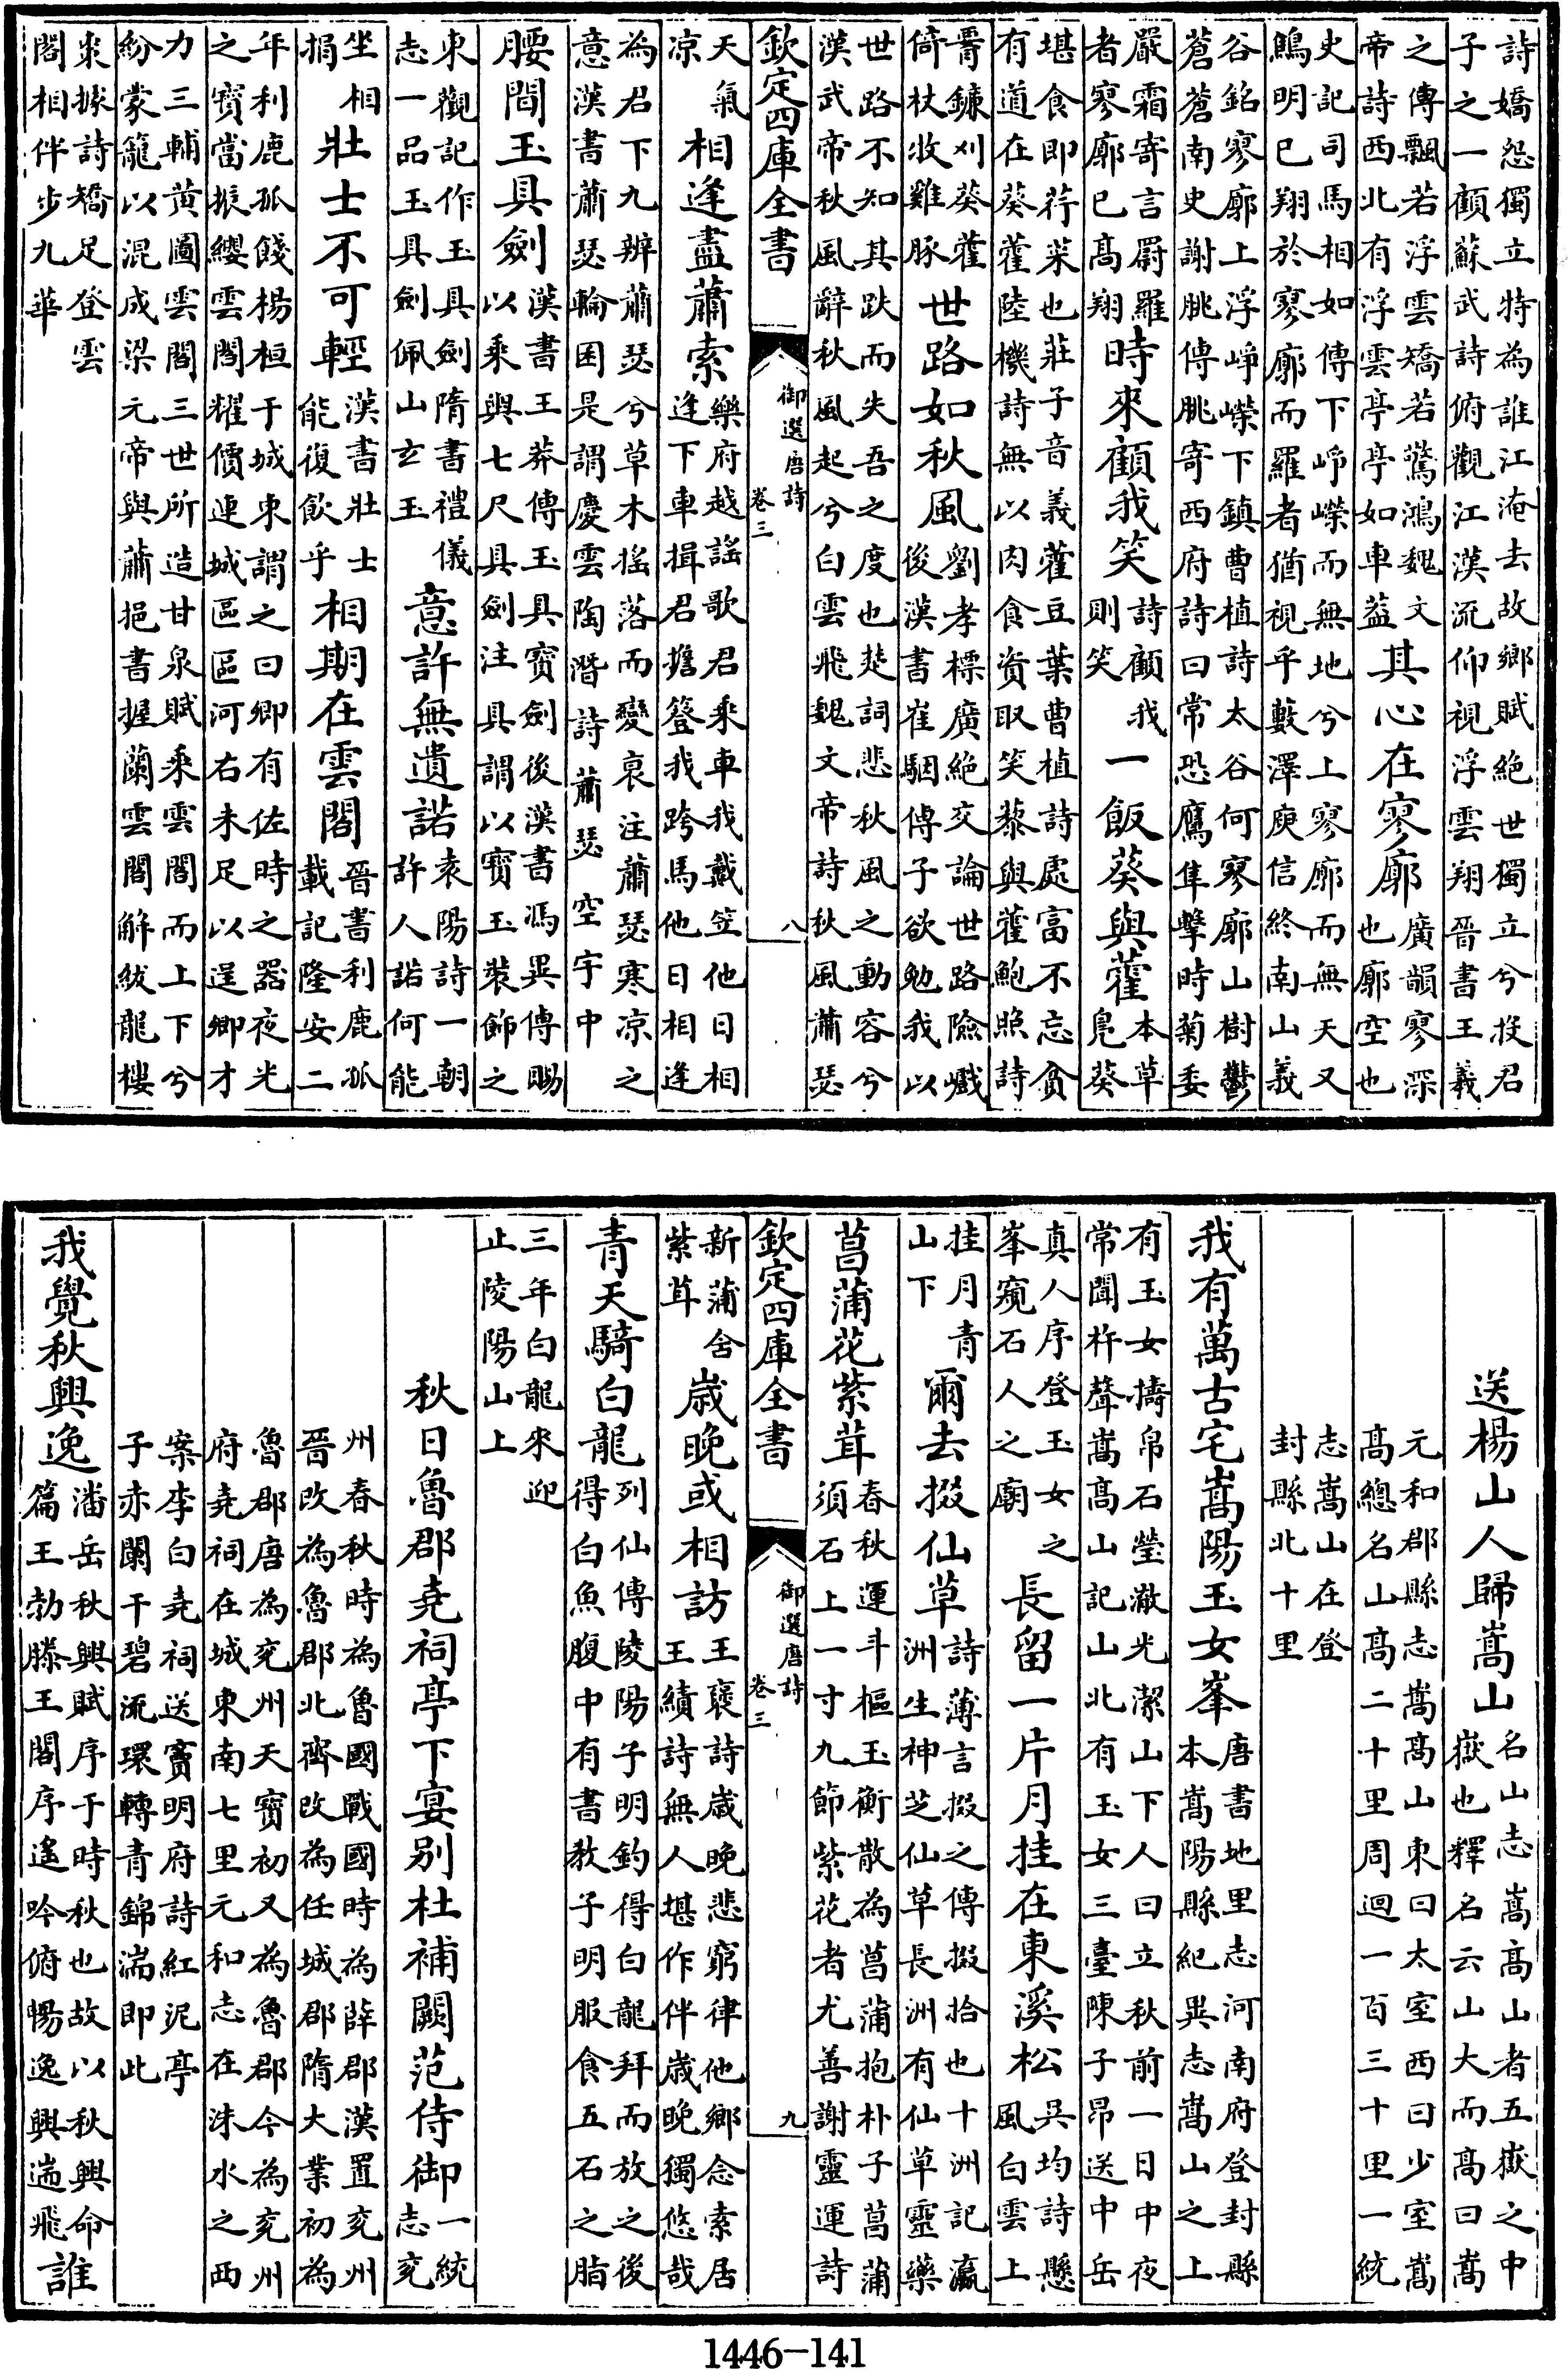 詩嬌怨獨立特為誰江淹去故鄉賦絶世獨立兮投君
子之一顧蘇武詩俯觀江漢流仰視浮雲翔晉書王羲
之傳飄若浮雲矯若驚鴻魏文
帝詩西北有浮雲亭亭如車葢
其心在寥廓
廣韻寥深
也廓空也
史記司馬相如傳下崢嶸而無地兮上寥廓而無天又
鷦明已翔於寥廓而羅者猶視乎藪澤庾信終南山義
谷銘寥廓上浮崢嶸下鎮曹植詩太谷何寥廓山樹鬱
蒼蒼南史謝朓傳朓寄西府詩曰常恐鷹隼擊時菊委
嚴霜寄言罻羅
者寥廓已高翔
時來顧我笑
詩顧我
則笑
一飯葵與藿
本草
鳧葵
堪食即荇菜也莊子音義藿豆葉曹植詩處富不忘貧
有道在葵藿陸機詩無以肉食資取笑藜與藿鮑照詩
鐮刈葵藿
倚杖收雞豚
世路如秋風
劉孝標廣絶交論世路險巇
後漢書崔駰傳子欲勉我以
世路不知其跌而失吾之度也楚詞悲秋風之動容兮
漢武帝秋風辭秋風起兮白雲飛魏文帝詩秋風蕭瑟
欽定四庫全書
御選唐詩
卷三
八
天氣
凉
相逢盡蕭索
樂府越謠歌君乘車我戴笠他日相
逢下車揖君擔簦我跨馬他日相逢
為君下九辨蕭瑟兮草木搖落而變衰注蕭瑟寒凉之
意漢書蕭瑟輪囷是謂慶雲陶潛詩蕭瑟空宇中
腰間玉具劍
漢書王莽傳玉具寶劍後漢書馮異傳賜
以乘輿七尺具劍注具謂以寶玉裝飾之
東觀記作玉具劍隋書禮儀
志一品玉具劍佩山玄玉
意許無遺諾
袁陽詩一朝
許人諾何能
坐相
捐
壯士不可輕
漢書壯士
能復飲乎
相期在雲閣
晉書利鹿孤
載記隆安二
年利鹿孤餞楊桓于城東謂之曰卿有佐時之器夜光
之寳當振纓雲閣耀價連城區區河右未足以逞卿才
力三輔黄圖雲閣三世所造甘泉賦乘雲閣而上下兮
紛蒙籠以混成梁元帝與蕭挹書握蘭雲閣解紱龍樓
棗據詩矯足登雲
閣相伴步九華
送楊山人歸嵩山
名山志嵩高山者五嶽之中
嶽也釋名云山大而高曰嵩
元和郡縣志嵩高山東曰太室西曰少室嵩
高總名山高二十里周迴一百三十里一統
志嵩山在登
封縣北十里
我有萬古宅嵩陽玉女峯
唐書地里志河南府登封縣
本嵩陽縣紀異志嵩山之上
有玉女擣帛石瑩澈光潔山下人曰立秋前一日中夜
常聞杵聲嵩高山記山北有玉女三臺陳子昂送中岳
真人序登玉女之
峯窺石人之廟
長留一片月挂在東溪松
吳均詩懸
風白雲上
挂月青
山下
爾去掇仙草
詩薄言掇之傳掇拾也十洲記瀛
洲生神芝仙草長洲有仙草靈藥
菖蒲花紫茸
春秋運斗樞玉衡散為菖蒲抱朴子菖蒲
須石上一寸九節紫花者尤善謝靈運詩
欽定四庫全書
御選唐詩
卷三
九
新蒲含
紫茸
歲晚或相訪
王襃詩歲晚悲窮律他鄉念索居
王績詩無人堪作伴歲晚獨悠哉
青天騎白龍
列仙傳陵陽子明釣得白龍拜而放之後
得白魚腹中有書教子明服食五石之脂
三年白龍來迎
止陵陽山上
秋日魯郡堯祠亭下宴别杜補闕范侍御
一統
志兖
州春秋時為魯國戰國時為薛郡漢置兖州
晉改為魯郡北齊改為任城郡隋大業初為
魯郡唐為兖州天寶初又為魯郡今為兖州
府堯祠在城東南七里元和志在洙水之西
案李白堯祠送竇明府詩紅泥亭
子赤闌干碧流環轉青錦湍即此
我覺秋興逸
潘岳秋興賦序于時秋也故以秋興命
篇王勃滕王閣序遙吟俯暢逸興遄飛
誰
1446-141